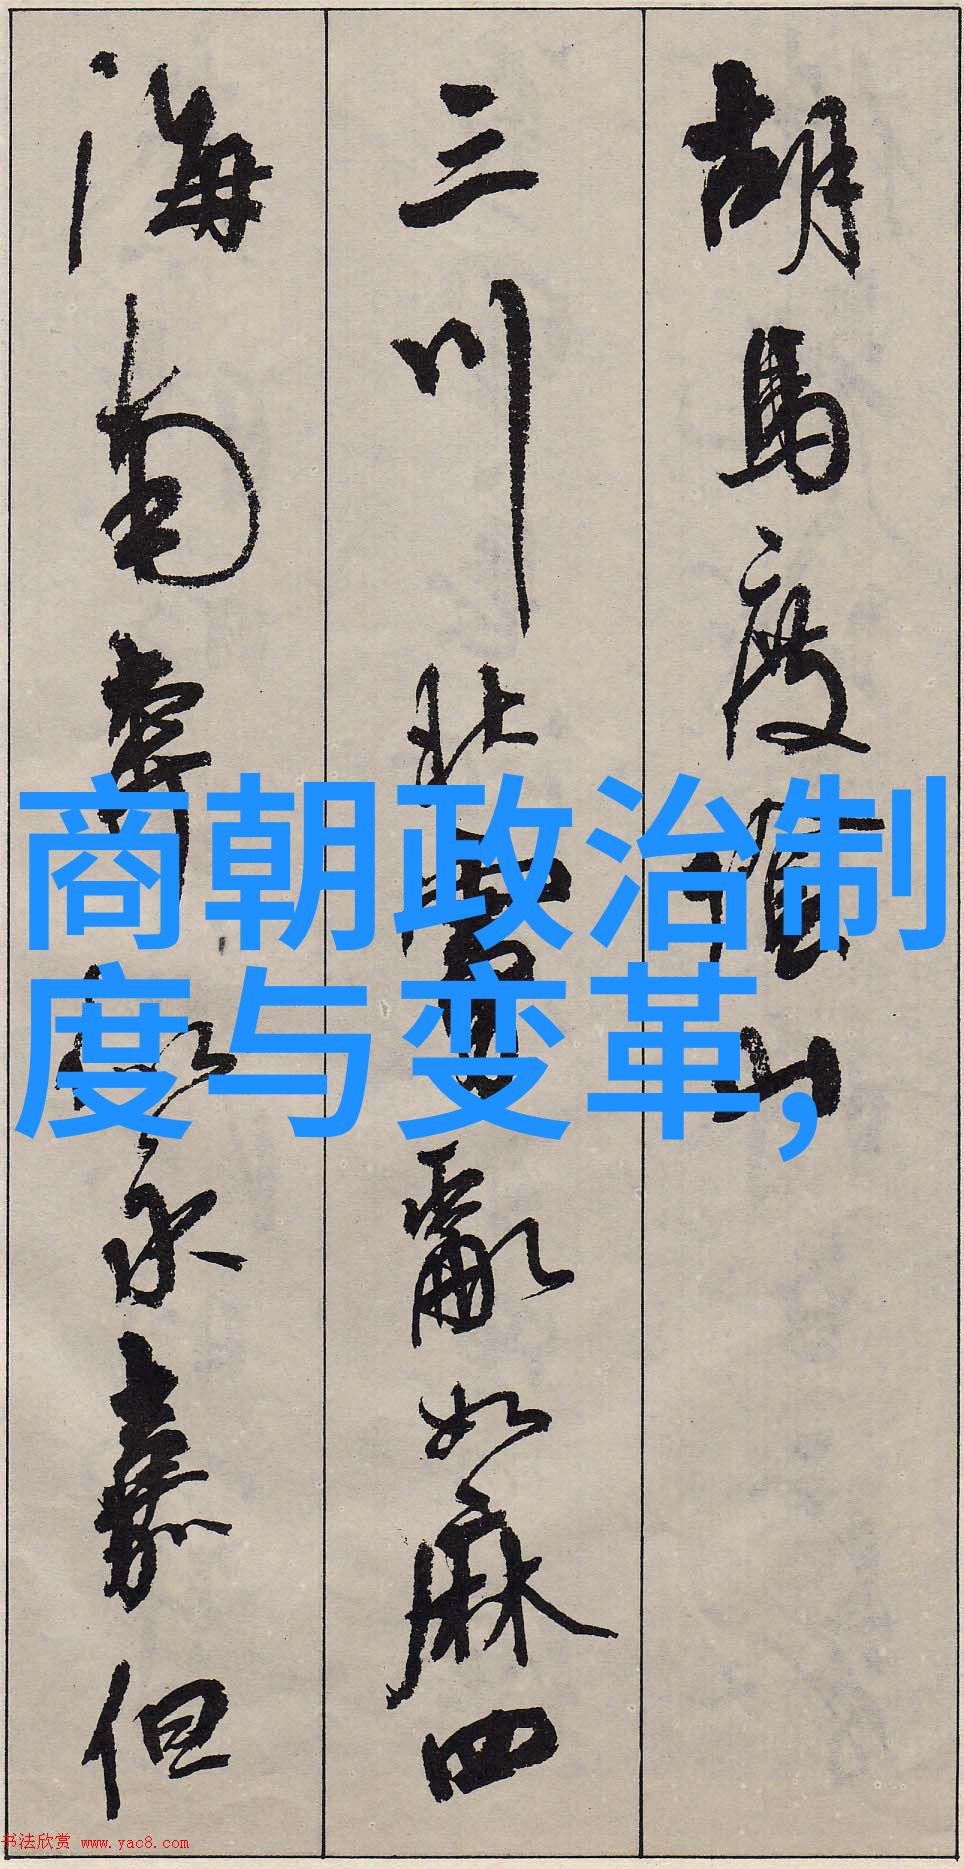 胡马度陇山
三川北虏乱如麻四
海南奔似永嘉但
商朝政治制
度与变革,
书法欣赏 www.yac8.com